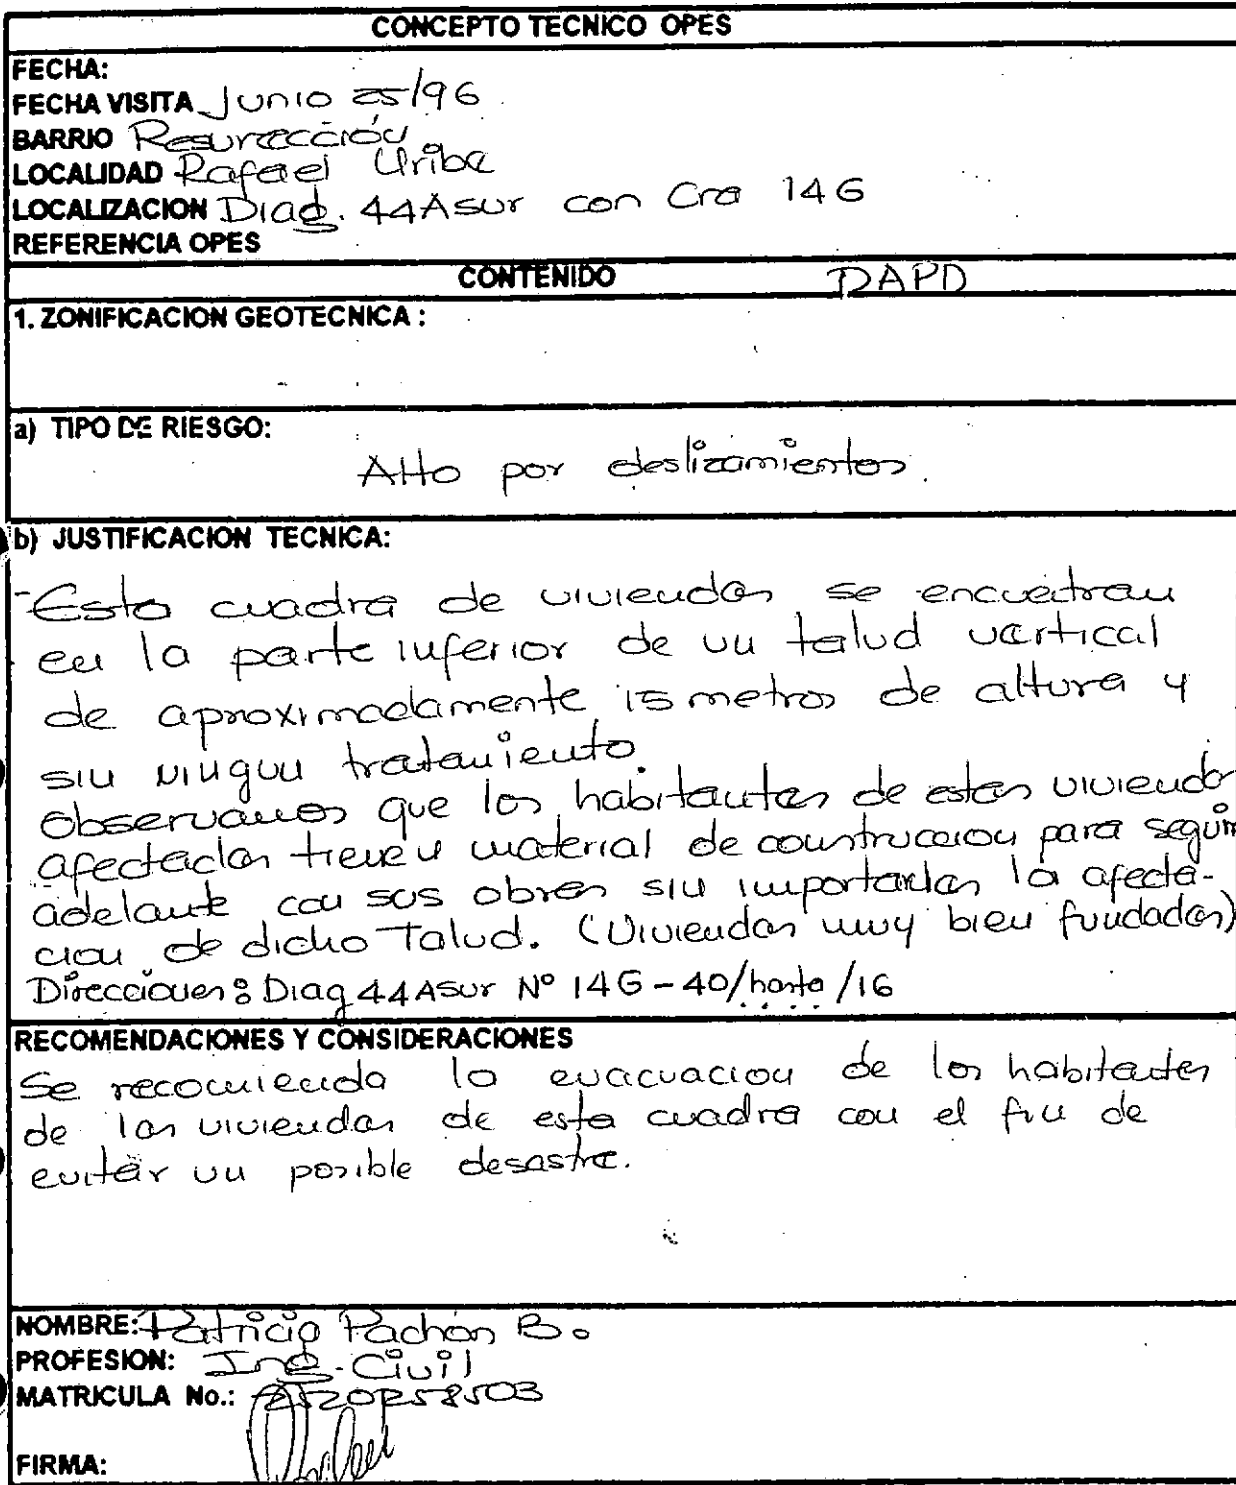 CONCEPTO TECNICO OPES
FECHA:
FECHA VISITA Junio 25/96
BARRIO Resurrección
LOCALIDAD Rafael Uribe
LOCALIZACION Diag. 44A sur con Cra 14G
REFERENCIA OPES
CONTENIDO DAPD
1. ZONIFICACION GEOTECNICA :
a) TIPO DE RIESGO:
Alto por deslizamientos.
b) JUSTIFICACION TECNICA:
- Esta cuadra de viviendas se encuentran
en la parte inferior de un talud vertical
de aproximadamente 15 metros de altura y
sin ningun tratamiento.
Observamos que los habitantes de estas viviendas
afectadas tienen material de construccion para seguir
adelante con sus obras sin importarles la afecta-
cion de dicho Talud. (Viviendas muy bien fundadas)
Direcciones: Diag 44A sur Nº 14G-40/hasta/16
RECOMENDACIONES Y CONSIDERACIONES
Se recomienda la evacuacion de los habitantes
de las viviendas de esta cuadra con el fin de
evitar un posible desastre.
NOMBRE: Patricia Pachón B.
PROFESION: Ing. Civil
MATRICULA No.: 2520258503
FIRMA: